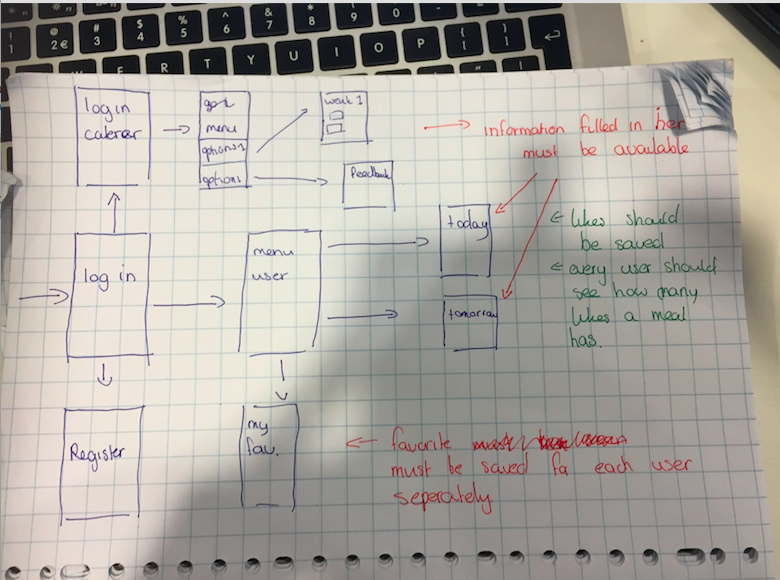 ! @ # $ % ^ & * ( )
1 2 € 3 4 5 6 7 8 9 0
[ ]
R T Y U I O P
log in
caterer
menu
options 1
options
week 1
Feedback
information filled in her
must be available
today
likes should
be saved
every user should
see how many
likes a meal
has.
log in
menu
user
tomorrow
Register
my
fav.
favorite
must be saved for each user
seperately